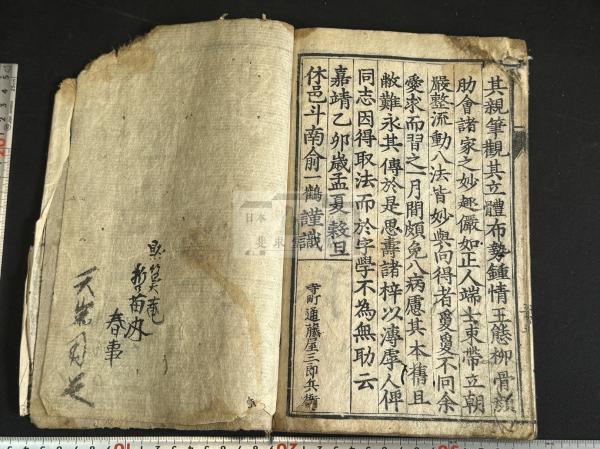 其親筆觀其立體布勢鍾情玉態柳骨顔
肋會諸家之妙趣儼如正人端士束帶立朝
嚴整流動八法皆妙與向得者夐不同余
愛求而習之一月間頗免八病慮其本舊且
敝難永其傳於是思壽諸梓以溥厚人俾
同志因得取法而於字學不為無助云
嘉靖乙卯歲孟夏穀旦
休邑斗南俞一鶴謹識
寺町通藤屋三郎兵衞
春事
日本